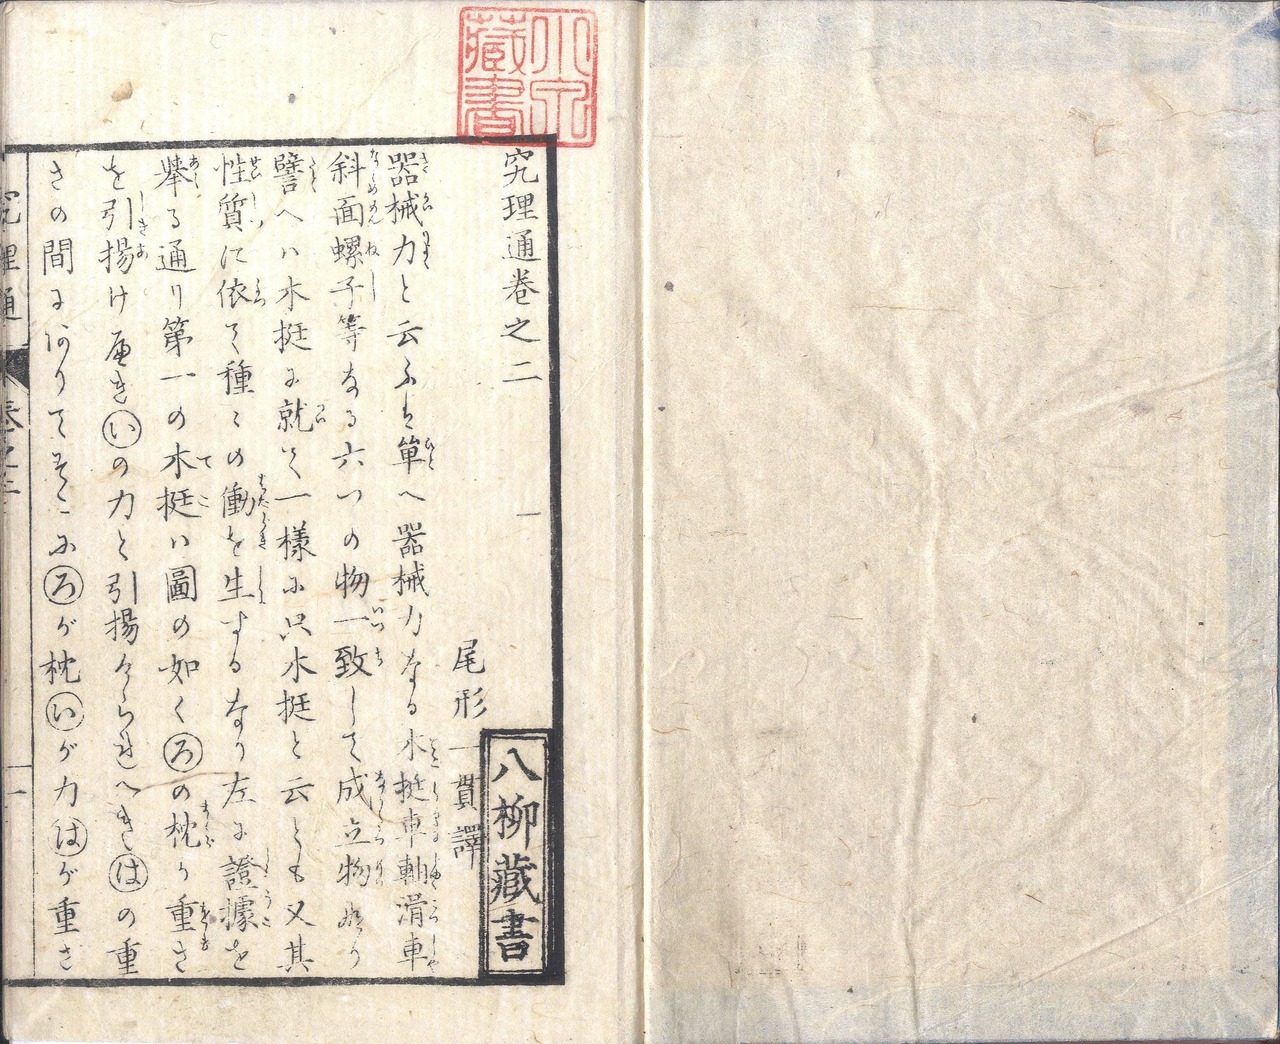 究理通卷之二
尾形一貫譯
器械力と云ふは單へ器械力なる木挺車軸滑車
斜面螺子等なる六つの物一致して成立物なり
譬へハ木挺に就て一樣に只木挺と云とも又其
性質に依て種々の働を生するなり左に證據を
擧る通り第一の木挺ハ圖の如くろの枕か重さ
を引揚け得べきいの力と引揚けらるへきはの重
さの間にありてそこにろが枕いが力はが重さ
八柳藏書
藏書
究理通
卷之二
一